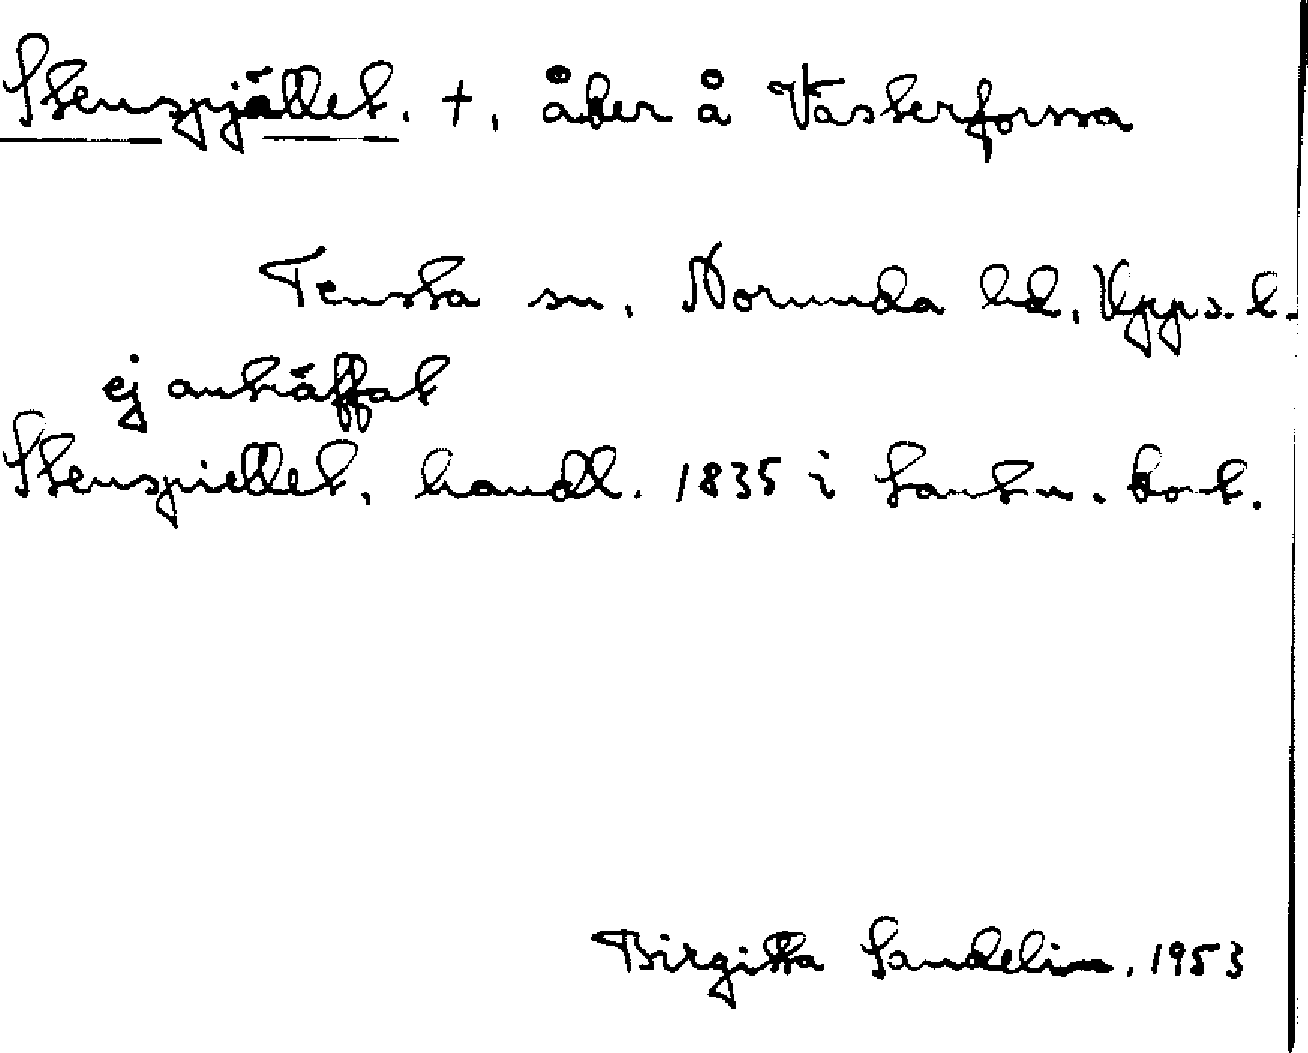 Stenspjället. †, åker å Västerforssa
Tensta sn, Norunda hd, Upps. l.
ej anträffat
Stenspiellet, handl. 1835 i Lantm. kont.
Birgitta Sandelin, 1953